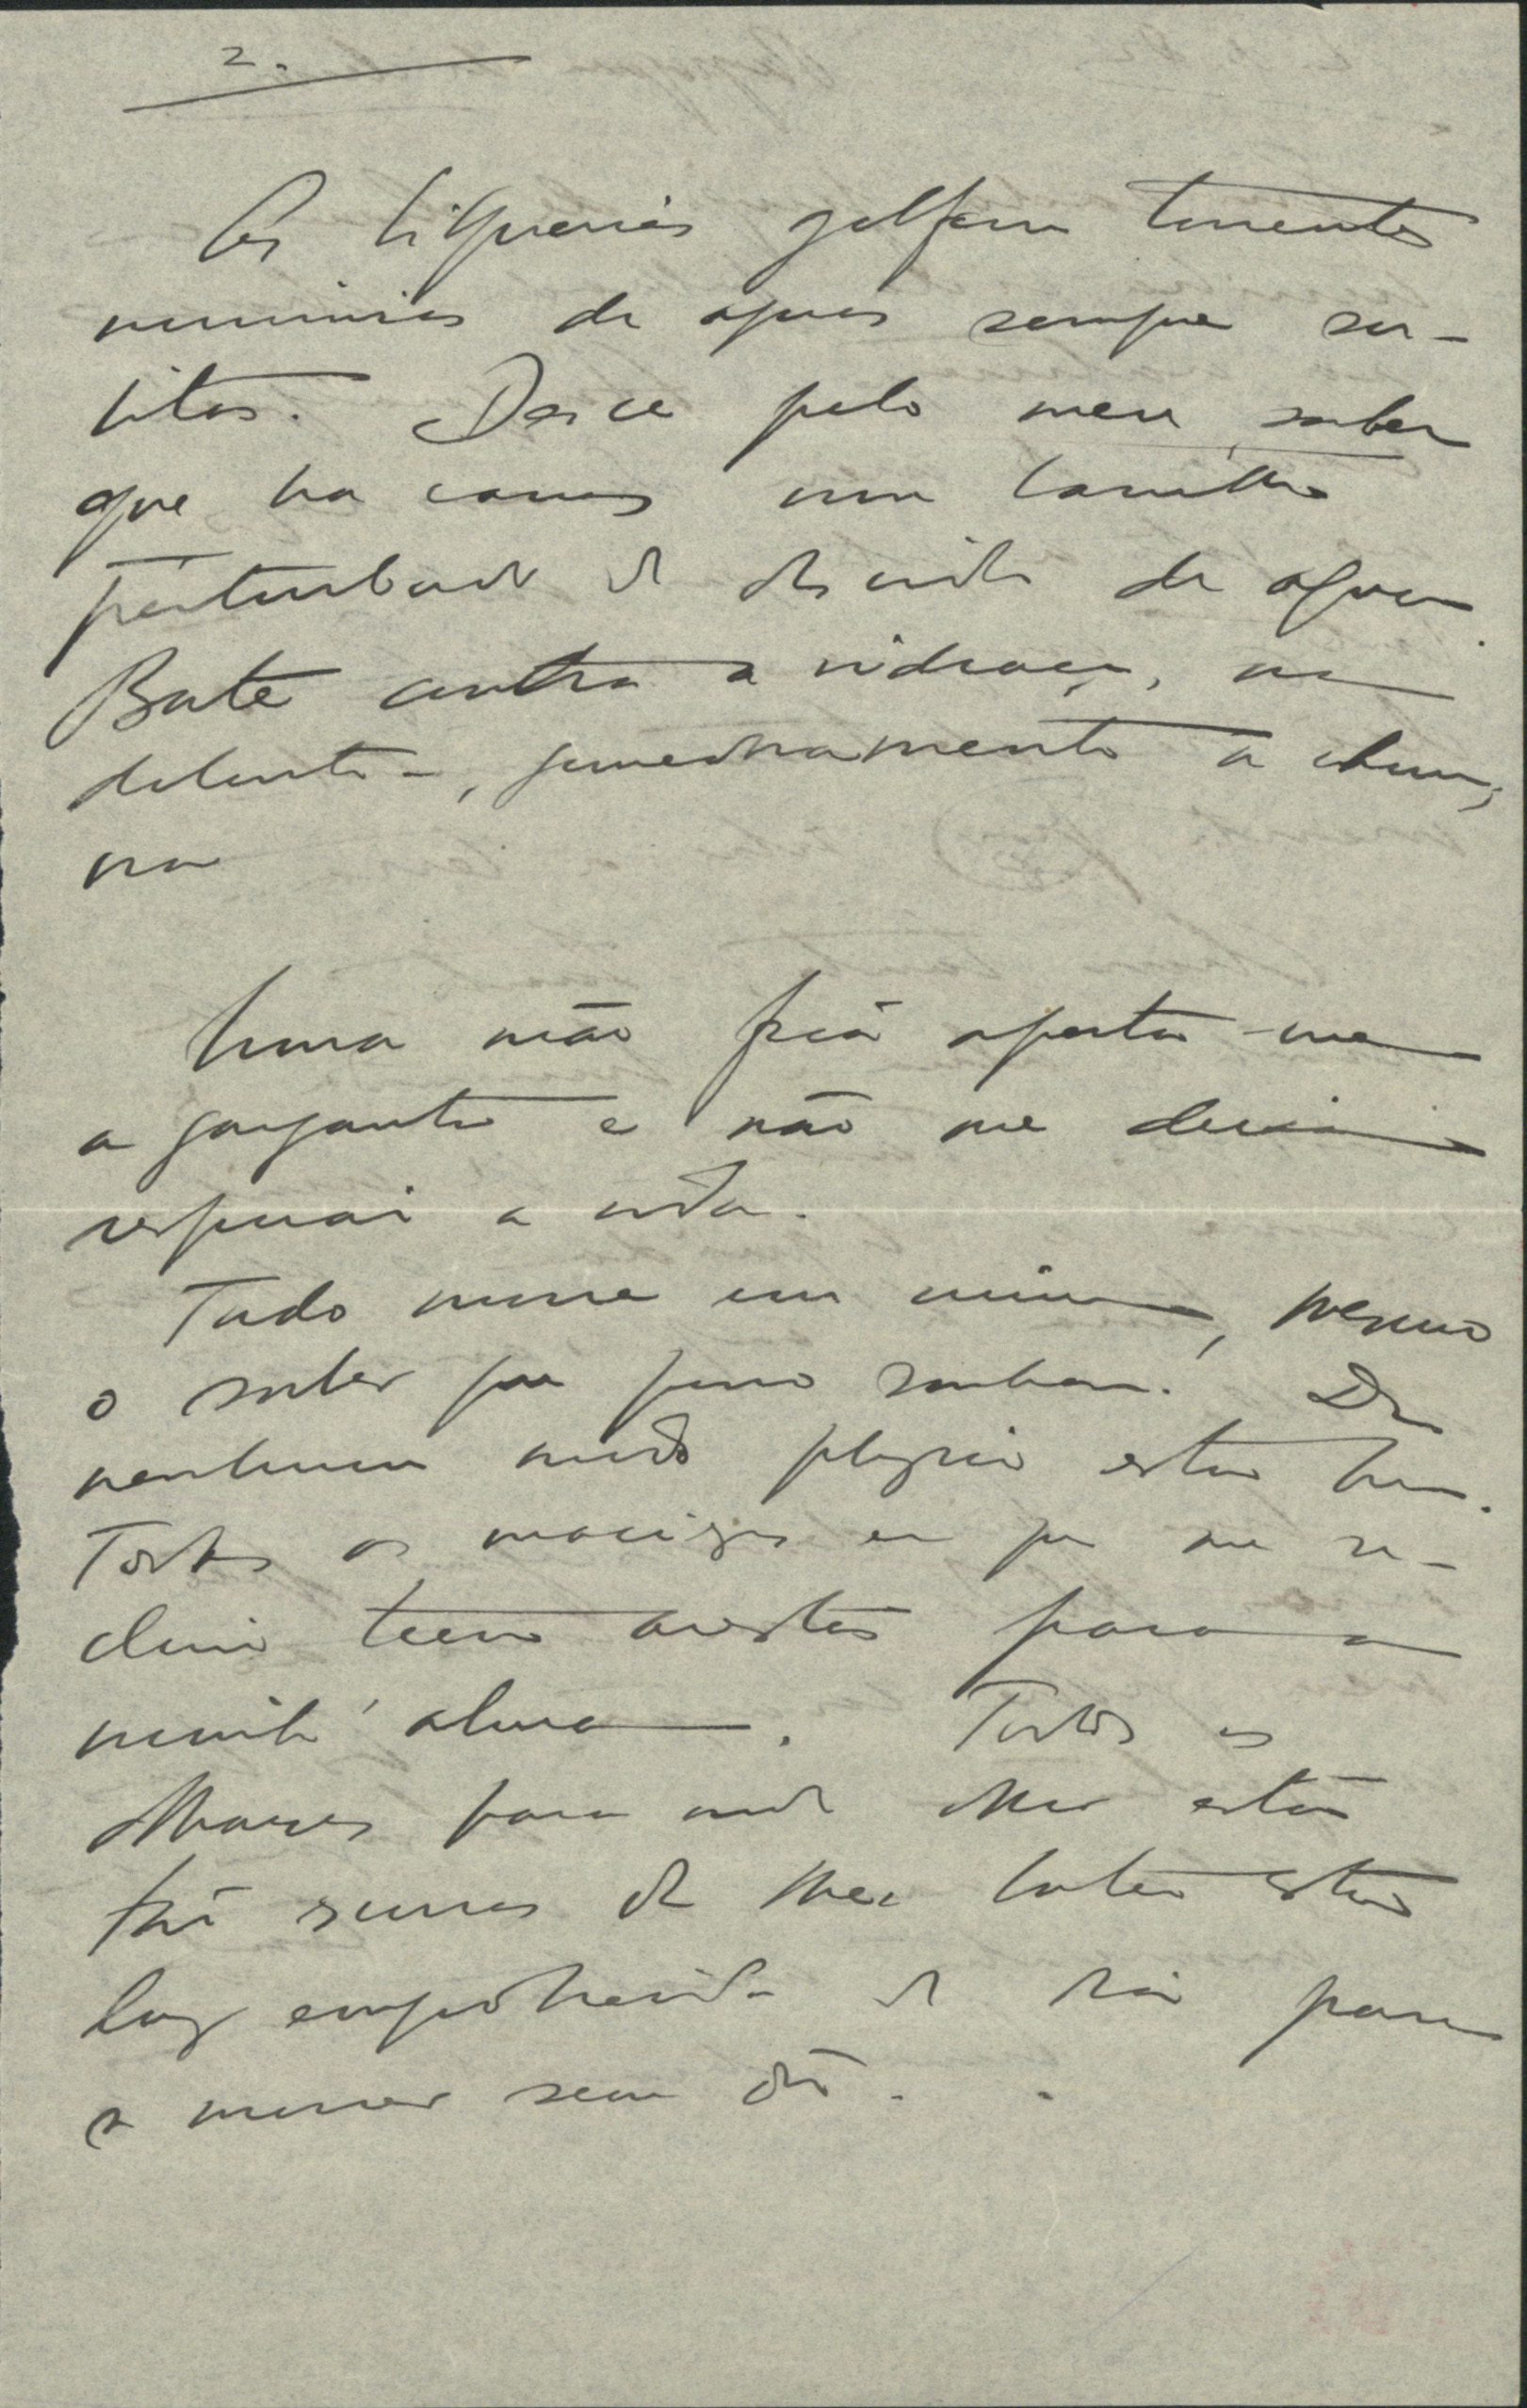 2.
As biqueiras golfam torrentes
minimas de aguas sempre su-
bitas. Desce pelo meu saber
que ha canos um barulho
perturbador de descida de agua.
Bate contra a vidraça, in
dolente, gemedoramente a chuva;
na
Uma mão fria aperta-me
a garganta e não me deixa
respirar a vida.
Tudo morre em mim, mesmo
o saber que posso sonhar! De
nenhum modo physico estou bem.
Todas as maciezas em que me re-
clino teem arestas para a
minh'alma. Todos os
olhares para onde olho estão
tão escuros de lhes bater esta
luz empobrecida do dia para
se morrer sem dôr.